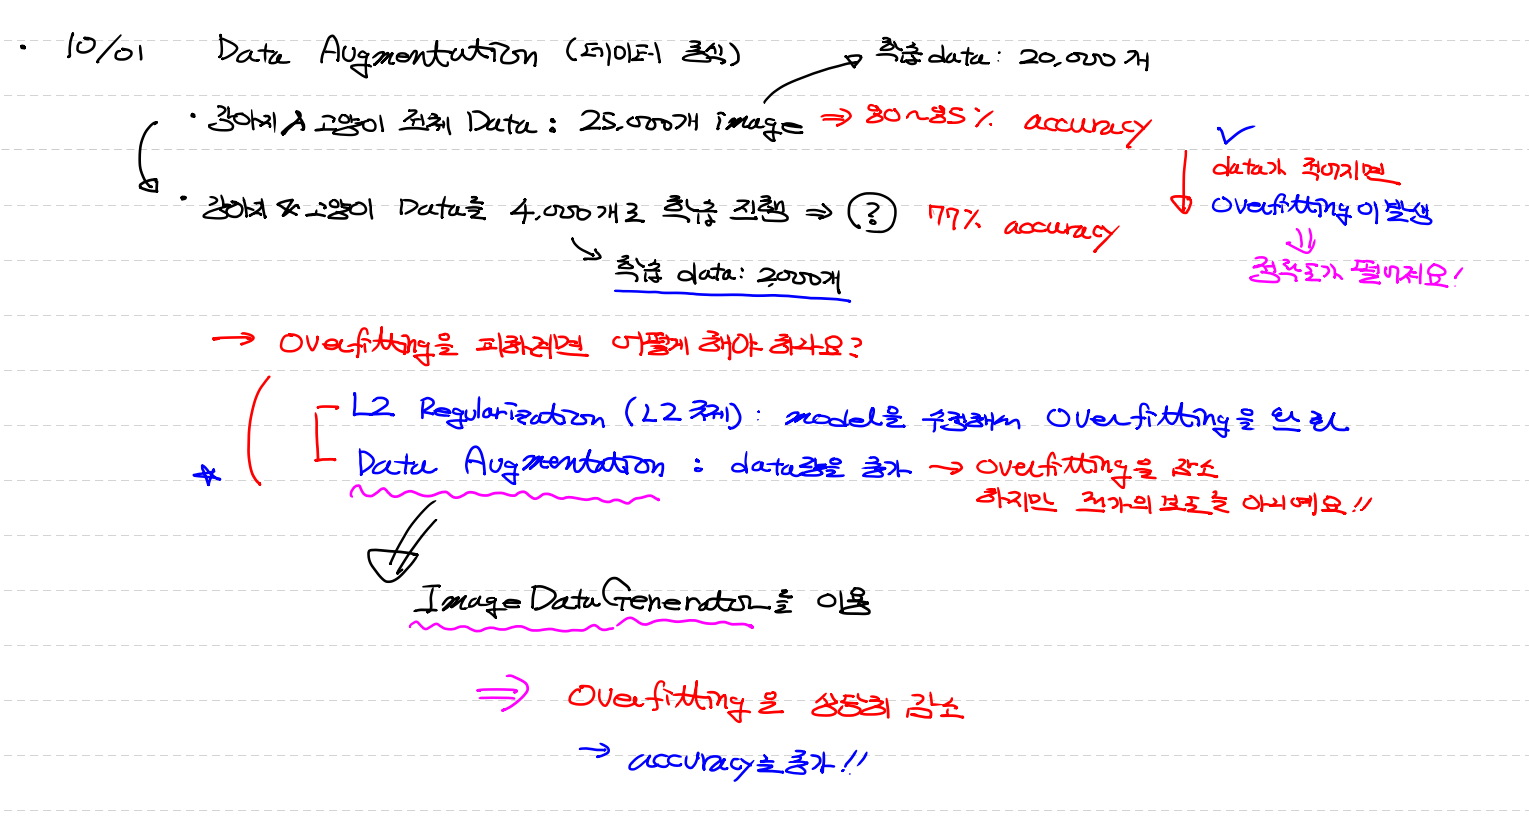 · 10/01 Data Augmentation (데이터 증식)
학습 data : 20,000개
· 강아지 & 고양이 전체 Data : 25,000개 image ⇒ 80~85% accuracy
· 강아지 & 고양이 Data를 4,000개로 학습 진행 ⇒ ? 77% accuracy
학습 data : 2,000개
✓
data가 적어지면
Overfitting이 발생
⇓
정확도가 떨어져요!
→ Overfitting을 피하려면 어떻게 해야 하나요?
L2 Regularization (L2 규제) : model을 수정해서 Overfitting을 완화
★ Data Augmentation : data량을 증가 → Overfitting을 감소
하지만 전가의 보도는 아니예요!!
ImageDataGenerator를 이용
⇒ Overfitting을 상당히 감소
→ accuracy는 증가!!